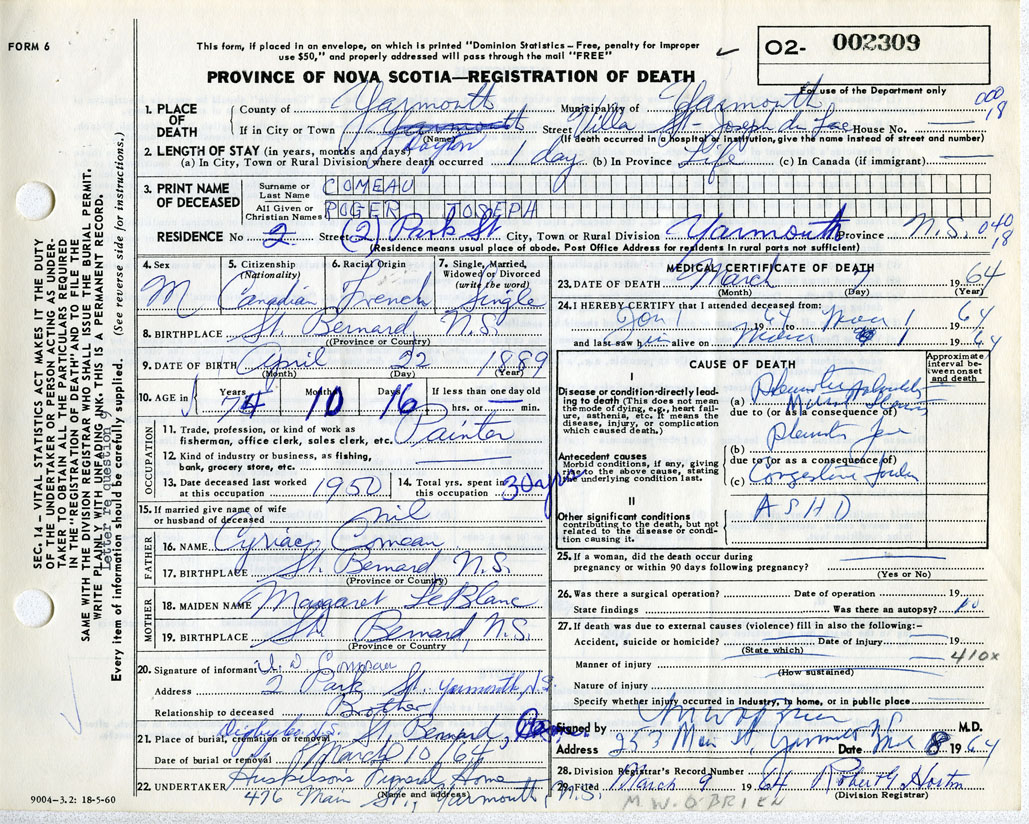 FORM 6
This form, if placed in an envelope, on which is printed "Dominion Statistics – Free, penalty for improper
use $50," and properly addressed will pass through the mail "FREE"
O2- 002309
For use of the Department only
PROVINCE OF NOVA SCOTIA—REGISTRATION OF DEATH
1. PLACE OF DEATH
County of Yarmouth Municipality of Yarmouth
000 18
If in City or Town Yarmouth Street Villa St. Joseph du Lac House No. —
(Name)
(If death occurred in hospital or institution, give the name instead of street and number)
Dayton
2. LENGTH OF STAY (in years, months and days)
(a) In City, Town or Rural Division where death occurred 1 day (b) In Province Life (c) In Canada (if immigrant) —
3. PRINT NAME OF DECEASED
Surname or Last Name COMEAU
All Given or Christian Names ROGER JOSEPH
RESIDENCE No 2 Street (2) Park St City, Town or Rural Division Yarmouth Province N.S.
040 18
(Residence means usual place of abode. Post Office Address for residents in rural parts not sufficient)
4. Sex M
5. Citizenship (Nationality) Canadian
6. Racial Origin French
7. Single, Married, Widowed or Divorced (write the word) Single
8. BIRTHPLACE St. Bernard N.S.
(Province or Country)
9. DATE OF BIRTH April 22 1889
(Month) (Day) (Year)
10. AGE in Years 74 Months 10 Days 16 If less than one day old hrs. or — min.
OCCUPATION
11. Trade, profession, or kind of work as fisherman, office clerk, sales clerk, etc. Painter
12. Kind of industry or business, as fishing, bank, grocery store, etc. —
13. Date deceased last worked at this occupation 1950
14. Total yrs. spent in this occupation 30 yrs
15. If married give name of wife or husband of deceased nil
FATHER
16. NAME Cyriac Comeau
17. BIRTHPLACE St. Bernard N.S.
(Province or Country)
MOTHER
18. MAIDEN NAME Margaret LeBlanc
19. BIRTHPLACE St. Bernard, N.S.
(Province or Country
20. Signature of informant Comeau
Address 2 Park St. Yarmouth, N.S.
Relationship to deceased Brother
21. Place of burial, cremation or removal Digby Co. St. Bernard,
Date of burial or removal March 10 64
22. UNDERTAKER Huskilson's Funeral Home
476 Main St., Yarmouth, N.S.
(Name and address)
9004–3.2: 18-5-60
MEDICAL CERTIFICATE OF DEATH
23. DATE OF DEATH March 7 1964
(Month) (Day) (Year)
24. I HEREBY CERTIFY that I attended deceased from:
Jan 1 19 64 to Mar 1 64
and last saw him alive on 1964
CAUSE OF DEATH
Approximate interval between onset and death
I
Disease or condition directly leading to death (This does not mean the mode of dying, e.g., heart failure, asthenia, etc. It means the disease, injury, or complication which caused death.)
(a)
due to (or as a consequence of)
Antecedent causes
Morbid conditions, if any, giving rise to the above cause, stating the underlying condition last.
(b)
due to (or as a consequence of)
(c) Congestive
II
Other significant conditions
contributing to the death, but not related to the disease or condition causing it.
ASHD
25. If a woman, did the death occur during
pregnancy or within 90 days following pregnancy? —
(Yes or No)
26. Was there a surgical operation? — Date of operation — 19
State findings — Was there an autopsy? no
27. If death was due to external causes (violence) fill in also the following:–
Accident, suicide or homicide? — Date of injury — 19
(State which)
410x
Manner of injury —
(How sustained)
Nature of injury
Specify whether injury occurred in industry, in home, or in public place
Signed by M W O'Brien M.D.
Address 253 Main St. Yarmouth N.S. Date Mch 8 1964
28. Division Registrar's Record Number
29. Filed March 9 1964 Robert G Horton
(Division Registrar)
M.W. O'BRIEN
SEC. 14 – VITAL STATISTICS ACT MAKES IT THE DUTY
OF THE UNDERTAKER OR PERSON ACTING AS UNDER-
TAKER TO OBTAIN ALL THE PARTICULARS REQUIRED
IN THE "REGISTRATION OF DEATH" AND TO FILE THE
SAME WITH THE DIVISION REGISTRAR WHO SHALL ISSUE THE BURIAL PERMIT.
WRITE PLAINLY WITH UNFADING INK. THIS IS A PERMANENT RECORD.
Letter re question
Every item of information should be carefully supplied. (See reverse side for instructions.)